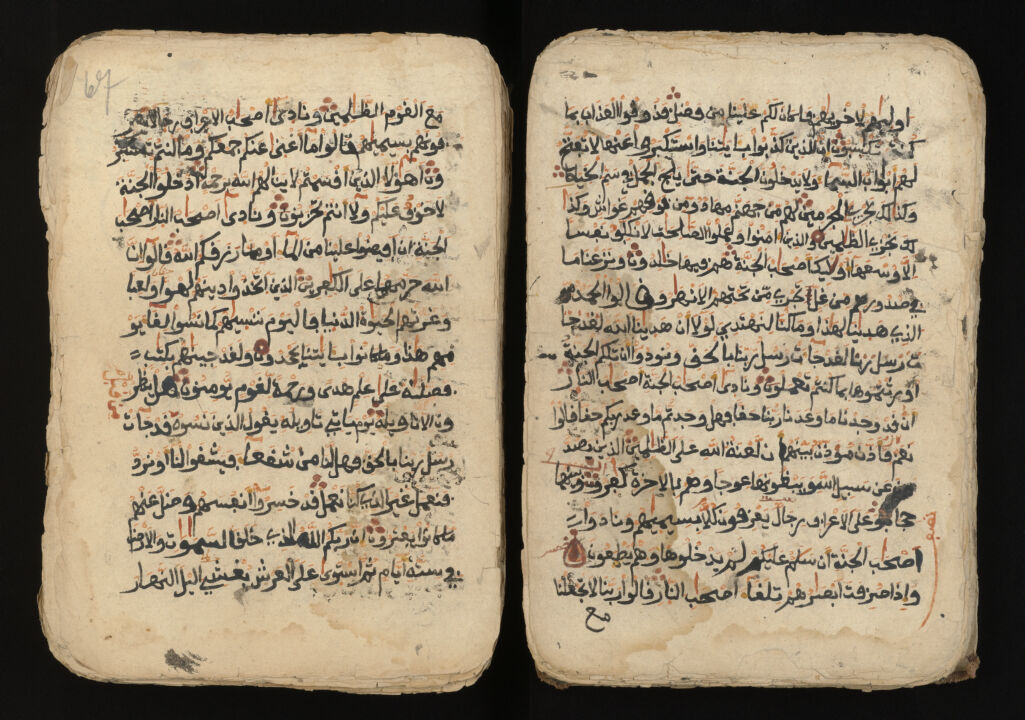 اوليهم لاخريهم فما كان لكم علينا من فضل فذوقوا العذاب بما
كنتم تكسبون ان الذين كذبوا بايتنا واستكبروا عنها لا تفتح
لهم ابواب السما ولا يدخلون الجنة حتى يلج الجمل في سم الخياط
وكذلك نجزي المجرمين لهم من جهنم مهاد ومن فوقهم غواش وكذا
لك نجزي الظلمين والذين امنوا وعملوا الصلحت لا نكلف نفسا
الا وسعها اوليك اصحب الجنة هم فيها خلدون ونزعنا ما
في صدورهم من غل تجري من تحتهم الانهر وقالوا الحمد لله
الذي هدينا لهذا وما كنا لنهتدي لولا ان هدينا الله لقد جا
ت رسل ربنا بالحق ونودوا ان تلكم الجنة
اورثتموها بما كنتم تعملون ونادى اصحب الجنة اصحب النار
ان قد وجدنا ما وعدنا ربنا حقا فهل وجدتم ما وعد ربكم حقا قالوا
نعم فاذن موذن بينهم ان لعنة الله على الظلمين الذين يصد
ون عن سبيل الله ويبغونها عوجا وهم بالاخرة كفرون وبينهما
حجاب وعلى الاعراف رجال يعرفون كلا بسيميهم ونادوا
اصحب الجنة ان سلم عليكم لم يدخلوها وهم يطمعون
واذا صرفت ابصرهم تلقا اصحب النار قالوا ربنا لا تجعلنا
مع
67
مع القوم الظلمين ونادى اصحب الاعراف رجالا يعر
فونهم بسيميهم قالوا ما اغنى عنكم جمعكم وما كنتم تستكبر
ون اهولا الذين اقسمتم لا ينالهم الله برحمة ادخلوا الجنة
لا خوف عليكم ولا انتم تحزنون ونادى اصحب النار اصحب
الجنة ان افيضوا علينا من الما او مما رزقكم الله قالوا ان
الله حرمهما على الكفرين الذين اتخذوا دينهم لهوا ولعبا
وغرتهم الحيوة الدنيا فاليوم ننسيهم كما نسوا لقا يو
مهم هذا وما كانوا بايتنا يجحدون ولقد جينهم بكتب
فصلنه على علم هدى ورحمة لقوم يومنون هل ينظر
ون الا تاويله يوم ياتي تاويله يقول الذين نسوه قد جات
رسل ربنا بالحق فهل لنا من شفعا فيشفعوا لنا او نرد
فنعمل غير الذي كنا نعمل قد خسروا انفسهم وضل عنهم
ما كانوا يفترون ان ربكم الله الذي خلق السموت والارض
في ستة ايام ثم استوى على العرش يغشي اليل النهار